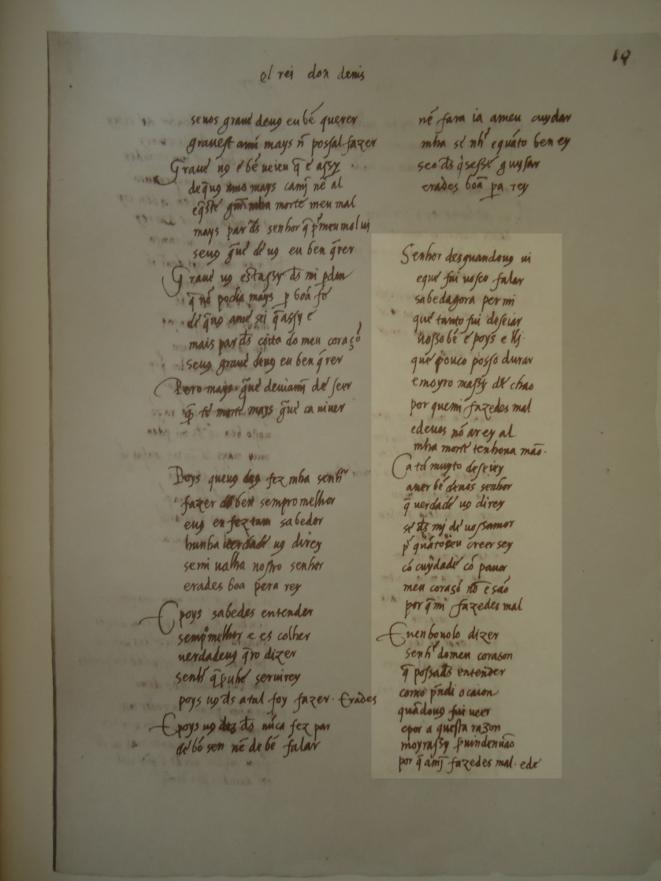 el rei don denis
19
senos graue deuos eu bẽ querer
grauest ami mays nõ possal fazer
Graue uos e bẽ ueieu q̃ e assy
mays par ds̃ senhor q̃ p̃ meu mal ui
seuos g̃ue de uos eu ben q̃rer
Graue uos est assy ds̃ mi pdon
q̃ nõ podia mays p boa fe
de q̃uos ame sei q̃ assy e
mais par ds̃ coita do meu coraçõ
seuos graue deuos eu ben q̃rer
Pero mays g̃ue deuiami de seer
morte mays g̃ue ca uiuer
Poys que uos ds̃ fez mha senhr̃
fazer de ben sempro melhor
euos en fez tam sabedor
hunha uerdade uos direy
semi ualha nostro senhor
erades boa pera rey
E poys sabedes entender
sempo melhor e escolher
uerdade uos q̃ro dizer
senhr̃ q̃ puir̃ seruirey
poys uos ds̃ atal foy fazer. Erades
E poys uos ds̃ nũca fez par
de bõ sen nẽ de bẽ falar
nẽ fara ia ameu cuydar
mha senhr̃ e quãto ben ey
seo ds̃ q̃sesse guysar
erades boa pa rey
Senhor des quando uos ui
e que fui uosco falar
sabed agora per mi
que tanto fui deseiar
uosso bẽ e poys e ssy
que pouco posso durar
e moyro massy de chao
por quemi fazedes mal
e de uos nõ ar ey al
mha morte tenho na mão.
Ca tã muyto deseiey
auer bẽ de uos senhor
q̃ uerdade uos direy
se ds̃ mj de uoss amor
p quãto eu creer sey
cõ cuydade cõ pauor
meu coraçõ nõ e são
por q̃ mi fazedes mal
E uenho uolo dizer
senhr̃ do meu coraçon
q̃ possades entender
como p̃ndi o caion
quãdo uos fui ueer
e por a questa razon
moyr assy
por q̃ amj fazedes mal. ede